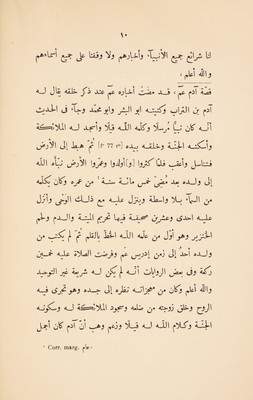 ١٠
لنا شرائع جميع الأنبياء وأخبارهم ولا وقفنا على جميع أسماءهم
والله أعلم،
قصّة آدم عم، قد مضت أخباره عم عند ذكر خلقه يقال له
آدم بن التراب وكنيته ابو البشر وابو محمّد وجاء فى الحديث
أنّه كان نبيّا مُرسلًا وكلّمه الله قيلًا وأسجد له الملائكة
وأسكنه الجنّة وخلقه بيده [f° 77 r°] ثمّ هبط إلى الأرض
فتناسل وأعقب فلمّا كثروا [و]أولدوا وعمّروا الأرض نبّأه الله
إلى ولده بعد مُضىّ خمس مائة سنة ¹ من عمره وكان يكلّمه
من السمآء بلا واسطة وينزل عليه مع ذلك الوَحْى وأنزل
عليه احدى وعشرين صحيفة فيها تحريم الميتة والدم ولحم
الخنزير وهو أوّل من علّمه الله الخطّ بالقلم ثمّ لم يكتب من
ولده أحدٌ إلى زمن إدريس عم وفرضت الصلاة عليه خمسين
ركعة وفى بعض الروايات أنّه لم يكن له شريعة غير التوحيد
والله أعلم وكان من معجزاته نظره إلى جسده وهو تجرى فيه
الروح وخلق زوجته من ضلعه وسجود الملائكة له وسكونه
الجنّة وكلام الله له قيلًا وزعم وهب أنّ آدم كان أجمل
¹ Corr. marg. عام.